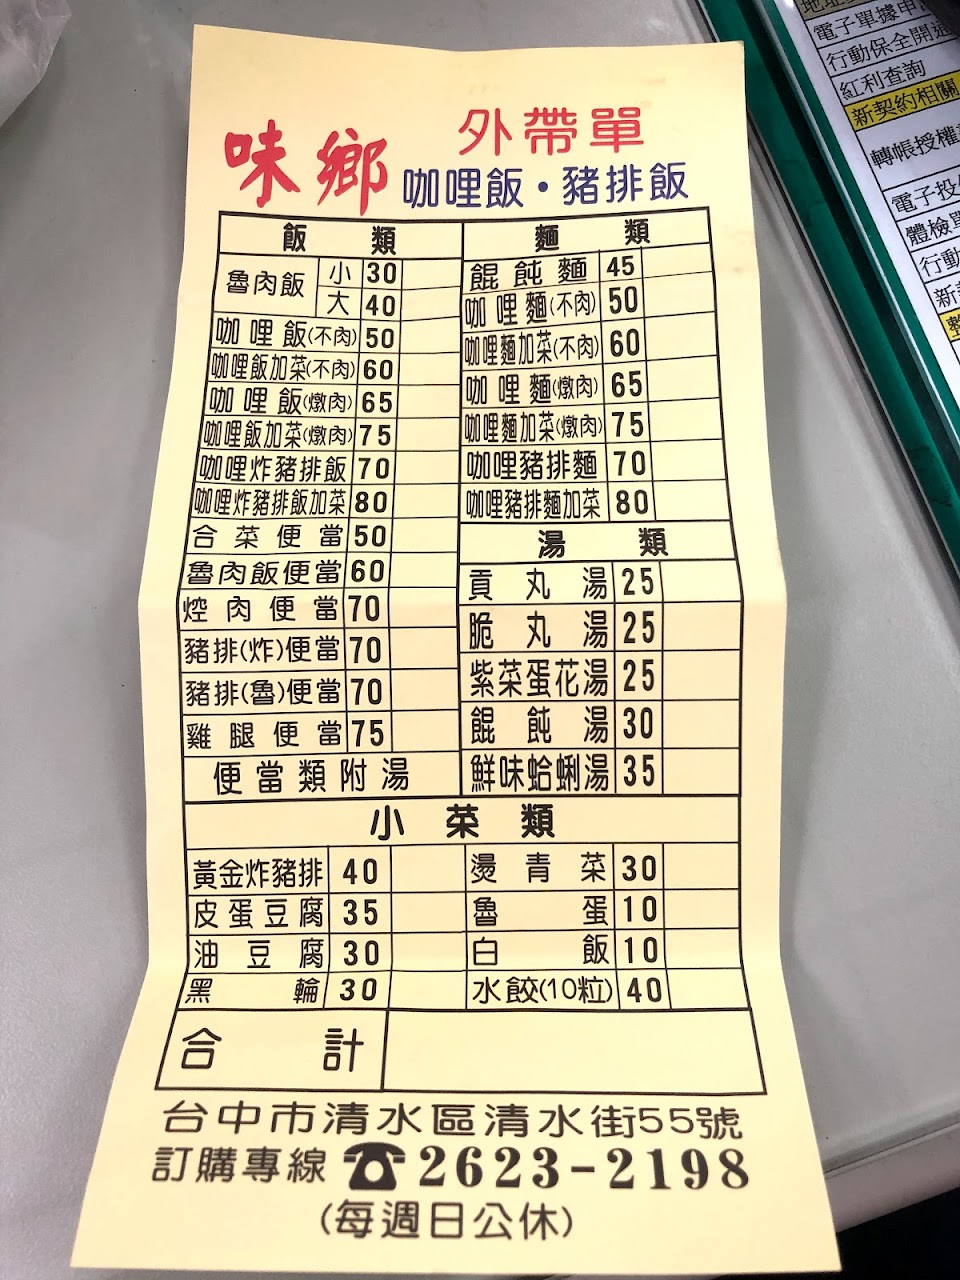 外帶單
味鄉 咖哩飯・豬排飯
飯類
魯肉飯 小 30
大 40
咖哩飯(不肉) 50
咖哩飯加菜(不肉) 60
咖哩飯(燉肉) 65
咖哩飯加菜(燉肉) 75
咖哩炸豬排飯 70
咖哩炸豬排飯加菜 80
合菜便當 50
魯肉飯便當 60
焢肉便當 70
豬排(炸)便當 70
豬排(魯)便當 70
雞腿便當 75
便當類附湯
麵類
餛飩麵 45
咖哩麵(不肉) 50
咖哩麵加菜(不肉) 60
咖哩麵(燉肉) 65
咖哩麵加菜(燉肉) 75
咖哩豬排麵 70
咖哩豬排麵加菜 80
湯類
貢丸湯 25
脆丸湯 25
紫菜蛋花湯 25
餛飩湯 30
鮮味蛤蜊湯 35
小菜類
黃金炸豬排 40
皮蛋豆腐 35
油豆腐 30
黑輪 30
燙青菜 30
魯蛋 10
白飯 10
水餃(10粒) 40
合計
台中市清水區清水街55號
訂購專線 ☎2623-2198
(每週日公休)
電子單據申
行動保全開通
紅利查詢
新契約相關
轉帳授權
電子投
體檢單
行動
新